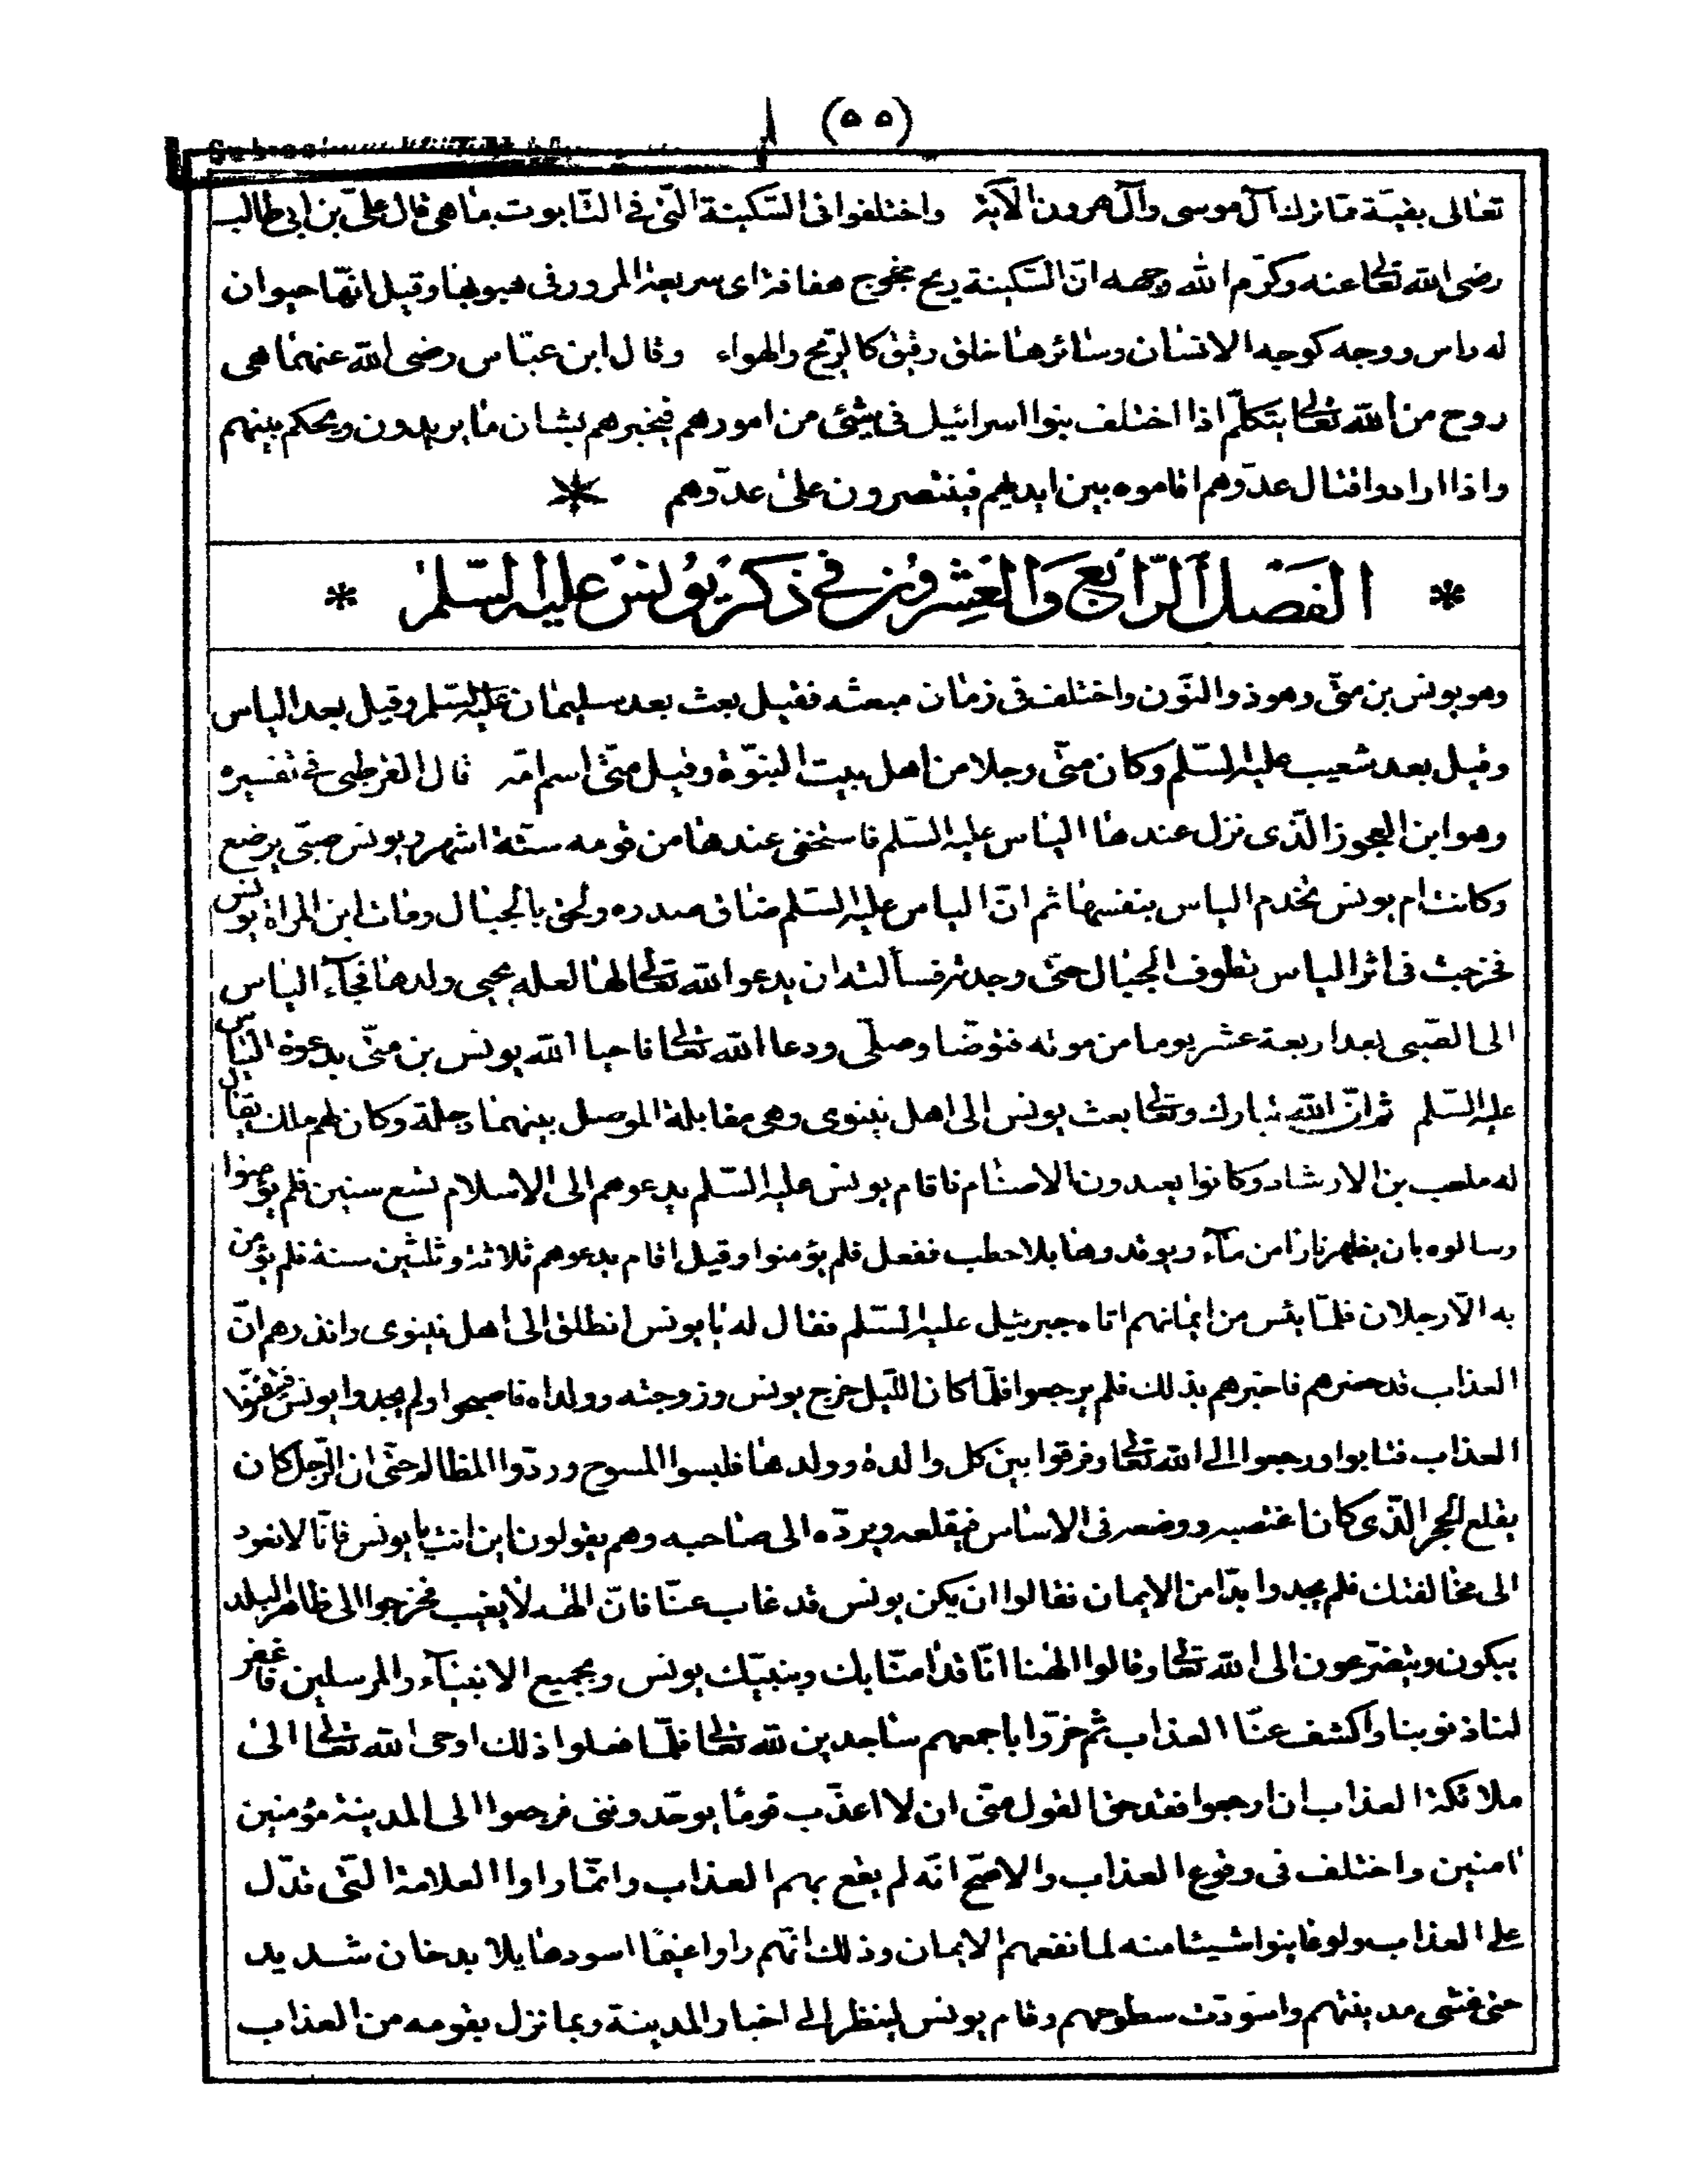 (٥٥)
تعالى بقيّة ممّا ترك آل موسى وآل هرون الآية واختلفوا فى السّكينة الّتى فى التّابوت ما هى قال علىّ بن ابى طالب
رضى الله تعالى عنه وكرّم الله وجهه انّ السّكينة ريح خجوج هفافة اى سريعة المرور فى هبوبها وقيل انّها حيوان
له راس ووجه كوجه الانسان وسائرها خلق رقيق كالرّيح والهواء وقال ابن عبّاس رضى الله عنهما هى
روح من الله تعالى يتكلّم اذا اختلف بنوا اسرائيل فى شئ من امورهم فيخبرهم بشان ما يريدون ويحكم بينهم
واذا ارادوا قتال عدّوهم اقاموه بين ايديهم فينتصرون على عدّوهم *
* الفصل الرّابع والعشرون فى ذكر يونس عليه السّلم *
وهو يونس بن متّى وهو ذو النّون واختلف فى زمان مبعثه فقيل بعث بعد سليمان عليه السّلم وقيل بعد الياس
وقيل بعد شعيب عليه السّلم وكان متّى رجلا من اهل بيت النبوّة وقيل متّى اسم امّه قال القرطبى فى تفسيره
وهو ابن العجوز الّذى نزل عندها الياس عليه السّلم فاستخفى عندها من قومه ستّة اشهر ويونس صبّى يرضع
وكانت ام يونس تخدم الياس بنفسها ثم انّ الياس عليه السّلم ضاق صدره ولحق بالجبال ومات ابن المراة يونس
فخرجت فى اثر الياس تطوف الجبال حتّى وجدته فسألته ان يدعوا الله تعالى لها لعله يحيى ولدها فجآء الياس
الى الصّبى بعد اربعة عشر يوما من موته فتوضّا وصلّى ودعا الله تعالى فاحيا الله يونس بن متّى بدعوة الياس
عليه السّلم ثم انّ الله تبارك وتعالى بعث يونس الى اهل نينوى وهى مقابلة الموصل بينهما دجلة وكان لهم ملك يقال
له ملعب بن الارشاد وكانوا يعبدون الاصنام فاقام يونس عليه السّلم يدعوهم الى الاسلام تسع سنين فلم يؤمنوا
وسالوه بان يظهر نارا من مآء ويوقدوها بلا حطب ففعل فلم يؤمنوا وقيل اقام يدعوهم ثلاثة وثلثين سنة فلم يؤمن
به الّا رجلان فلمّا يئس من ايمانهم اتاه جبرئيل عليه السّلم فقال له يا يونس انطلق الى اهل نينوى وانذرهم انّ
العذاب قد حضرهم فاخبرهم بذلك فلم يرجعوا فلمّا كان اللّيل خرج يونس وزوجته وولداه فاصبحوا ولم يجدوا يونس
العذاب فتابوا ورجعوا الى الله تعالى وفرقوا بين كل والدة وولدها فلبسوا المسوح وردّوا المظالم حتّى ان الرّجل كان
يقلع الحجر الّذى كان اغتصبه ووضعه فى الاساس فيقلعه ويردّه الى صاحبه وهم يقولون اين انت يا يونس فانّا لا نعود
الى مخالفتك فلم يجدوا بدّا من الايمان فقالوا ان يكن يونس قد غاب عنّا فانّ الهه لا يغيب فخرجوا الى ظاهر البلد
يبكون ويتضرّعون الى الله تعالى وقالوا الهنا انّا قد امنّا بك وبنبيّك يونس وبجميع الانبيآء والمرسلين فاغفر
لنا ذنوبنا واكشف عنّا العذاب ثم خرّوا باجمعهم ساجدين لله تعالى فلمّا فعلوا ذلك اوحى الله تعالى الى
ملائكة العذاب ان ارجعوا فقد حق القول منّى ان لا اعذّب قوما يوحّدوننى فرجعوا الى المدينة مؤمنين
امنين واختلف فى وقوع العذاب والاصحّ انّه لم يقع بهم العذاب وانّما راوا العلامة الّتى تدّل
على العذاب ولو عاينوا شيئا منه لما نفعهم الايمان وذلك انّهم راوا غيما اسود هايلا بدخان شديد
حتى غشى مدينتهم واسوّدت سطوحهم وقام يونس لينظر الى اخبار المدينة وبما نزل بقومه من العذاب